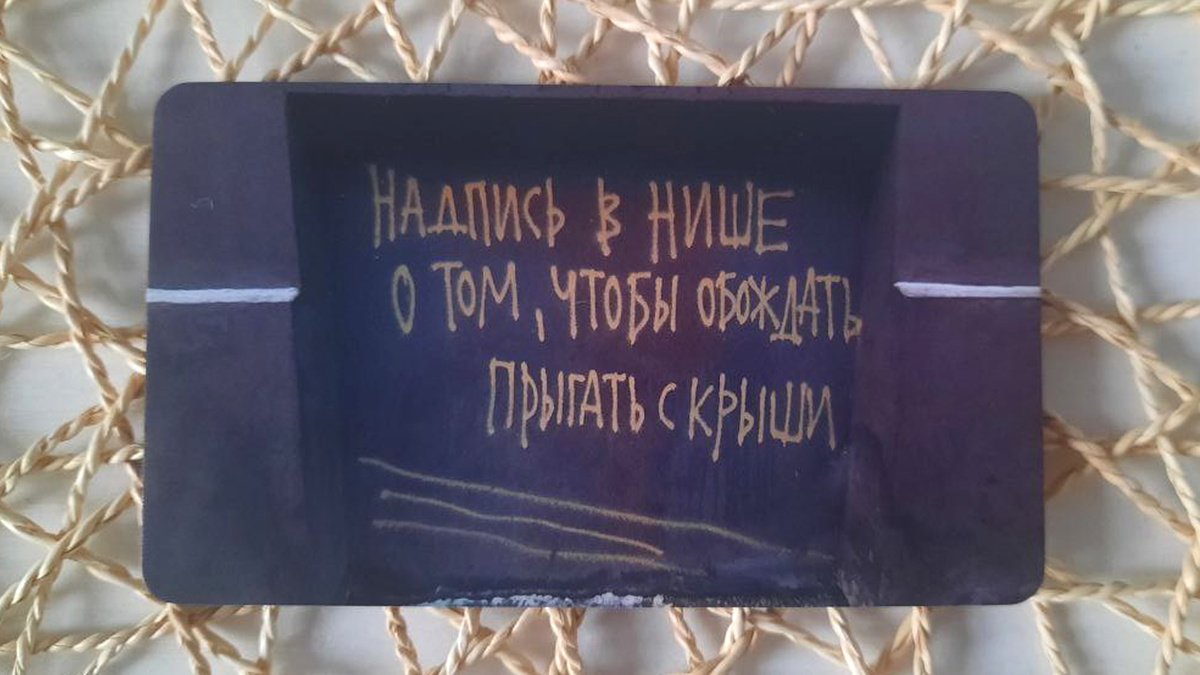 НАДПИСЬ В НИШЕ
О ТОМ, ЧТОБЫ ОБОЖДАТЬ
ПРЫГАТЬ С КРЫШИ